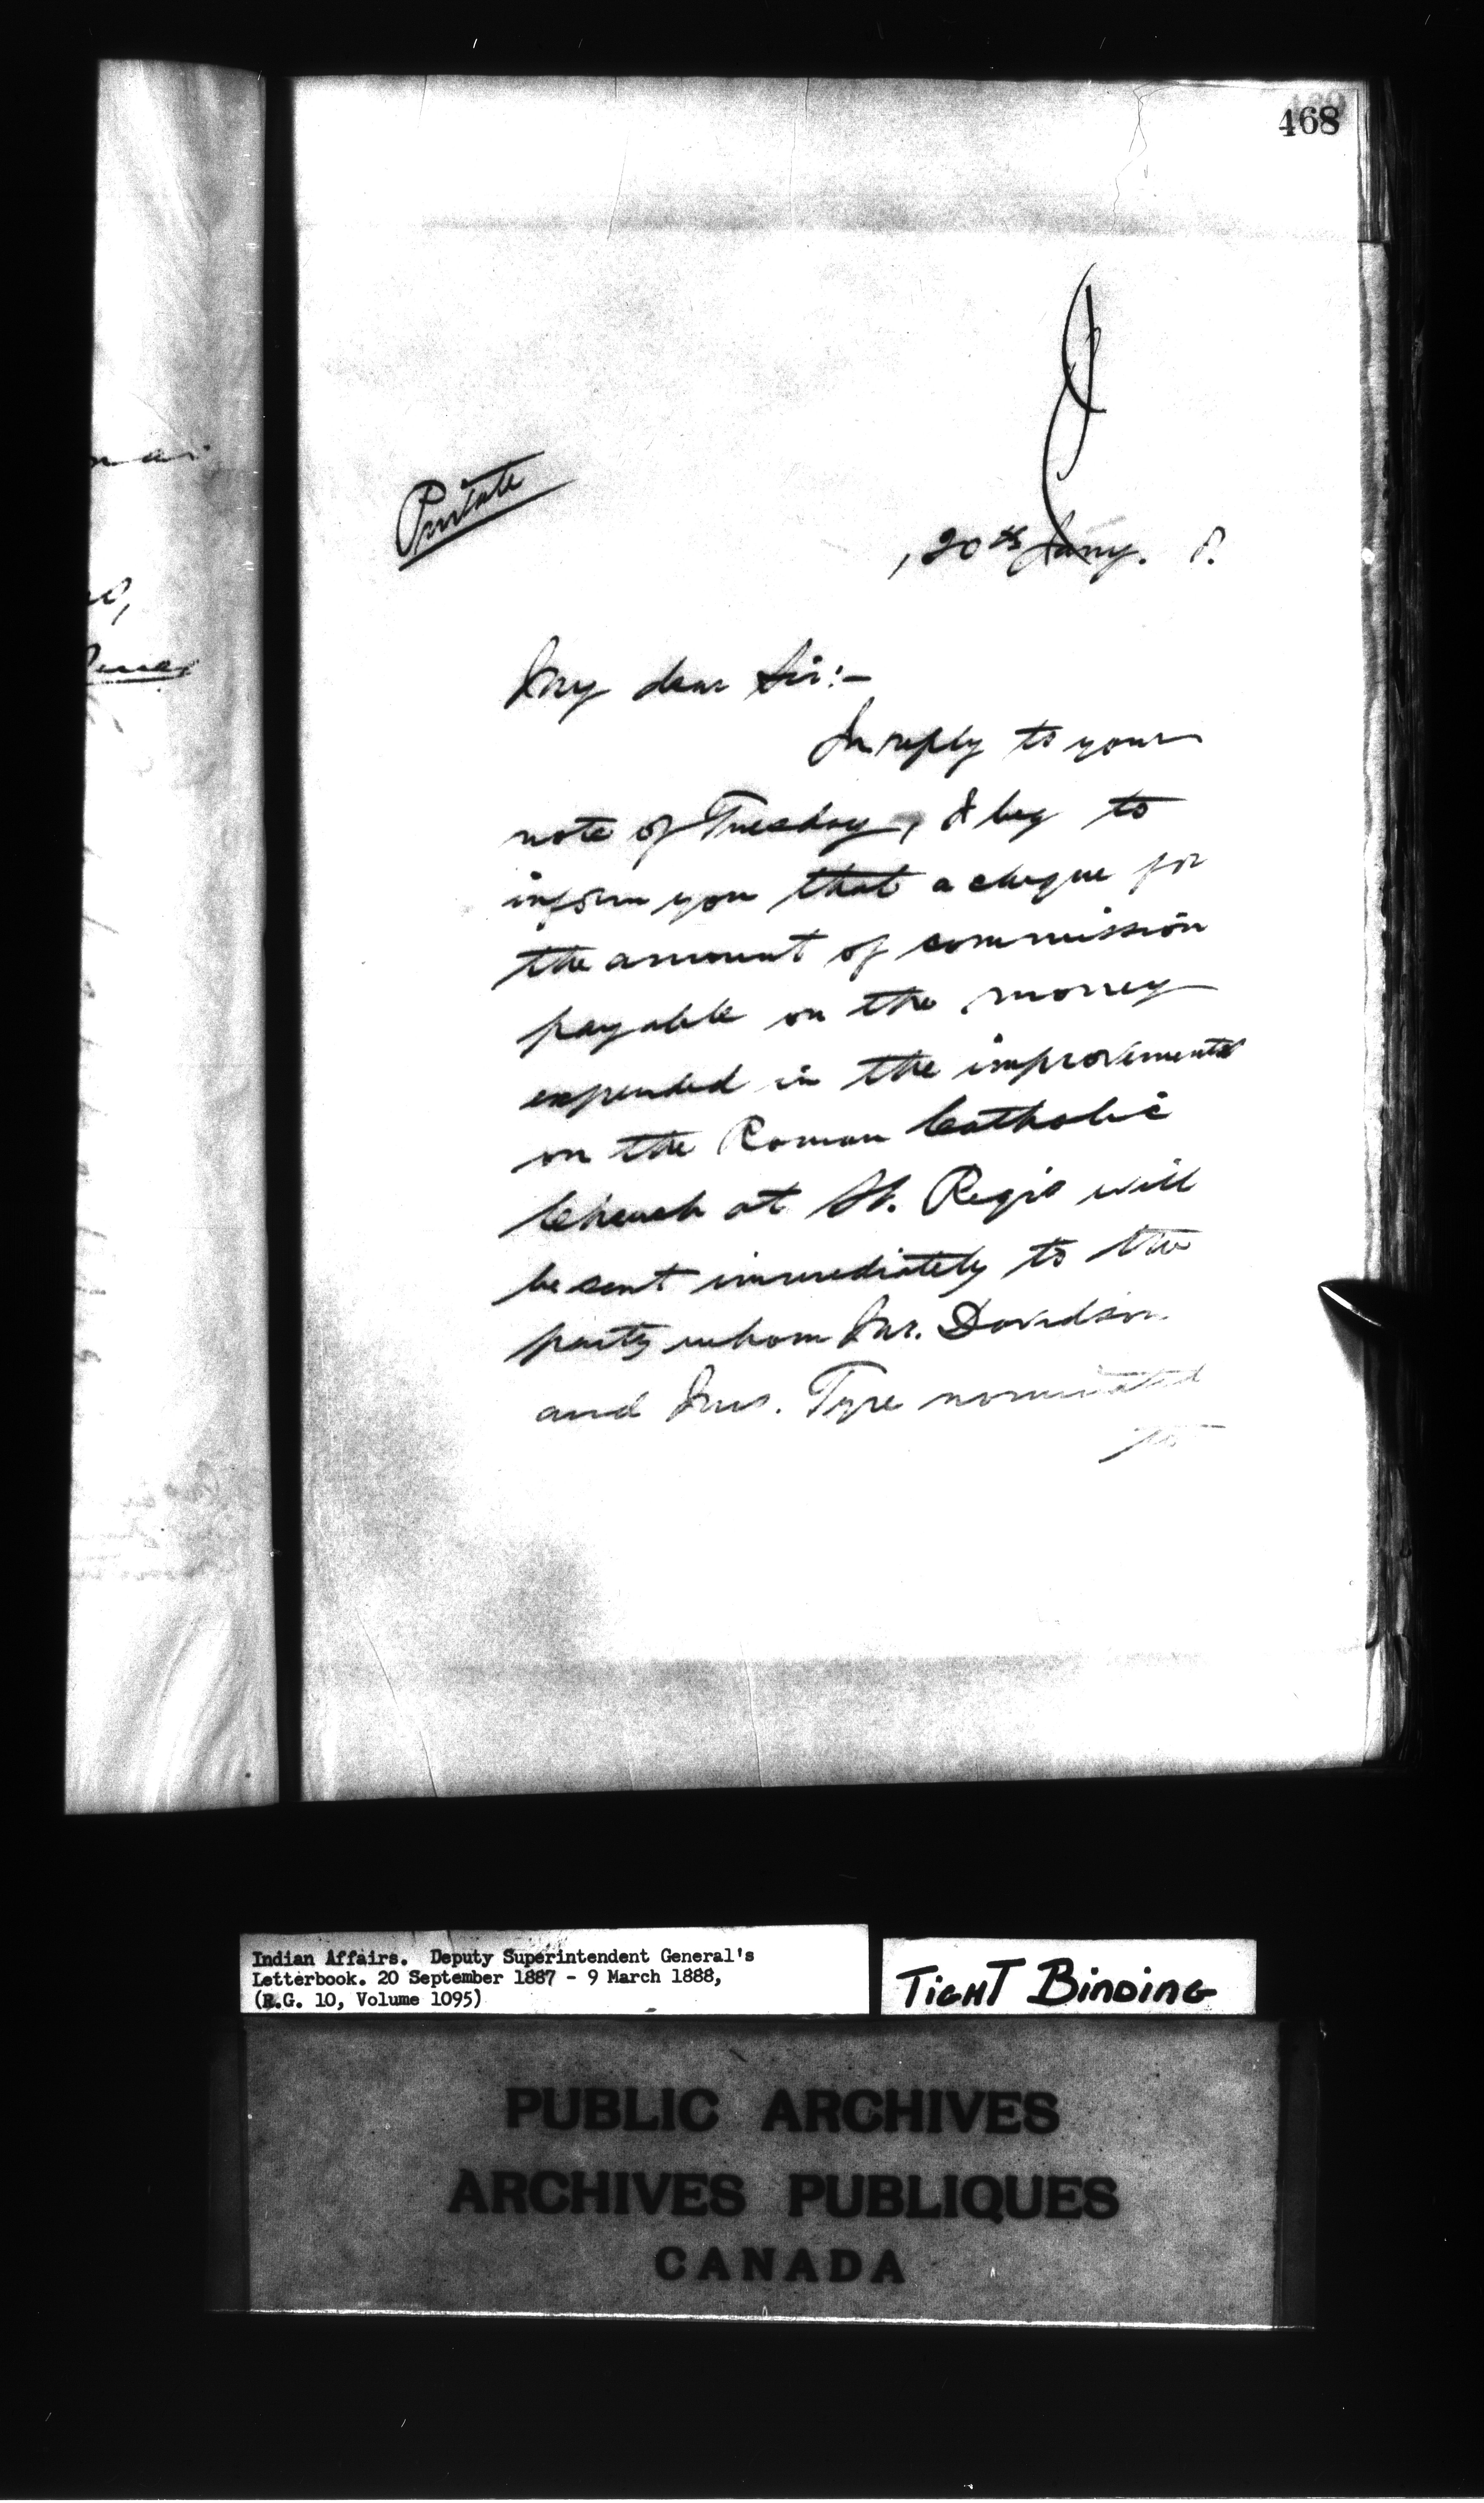 468
Private
, 20th Jany. 8.
My dear Sir:-
In reply to your
note of Tuesday, I beg to
inform you that a cheque for
the amount of commission
payable on the money
expended in the improvements
on the Roman Catholic
Church at St. Regis will
be sent immediately to the
party whom Mr. Davidson
and Mrs. Tyre nominated
to
Indian Affairs. Deputy Superintendent General's
Letterbook. 20 September 1887 - 9 March 1888,
(R.G. 10, Volume 1095)
TIGHT BINDING
PUBLIC ARCHIVES
ARCHIVES PUBLIQUES
CANADA